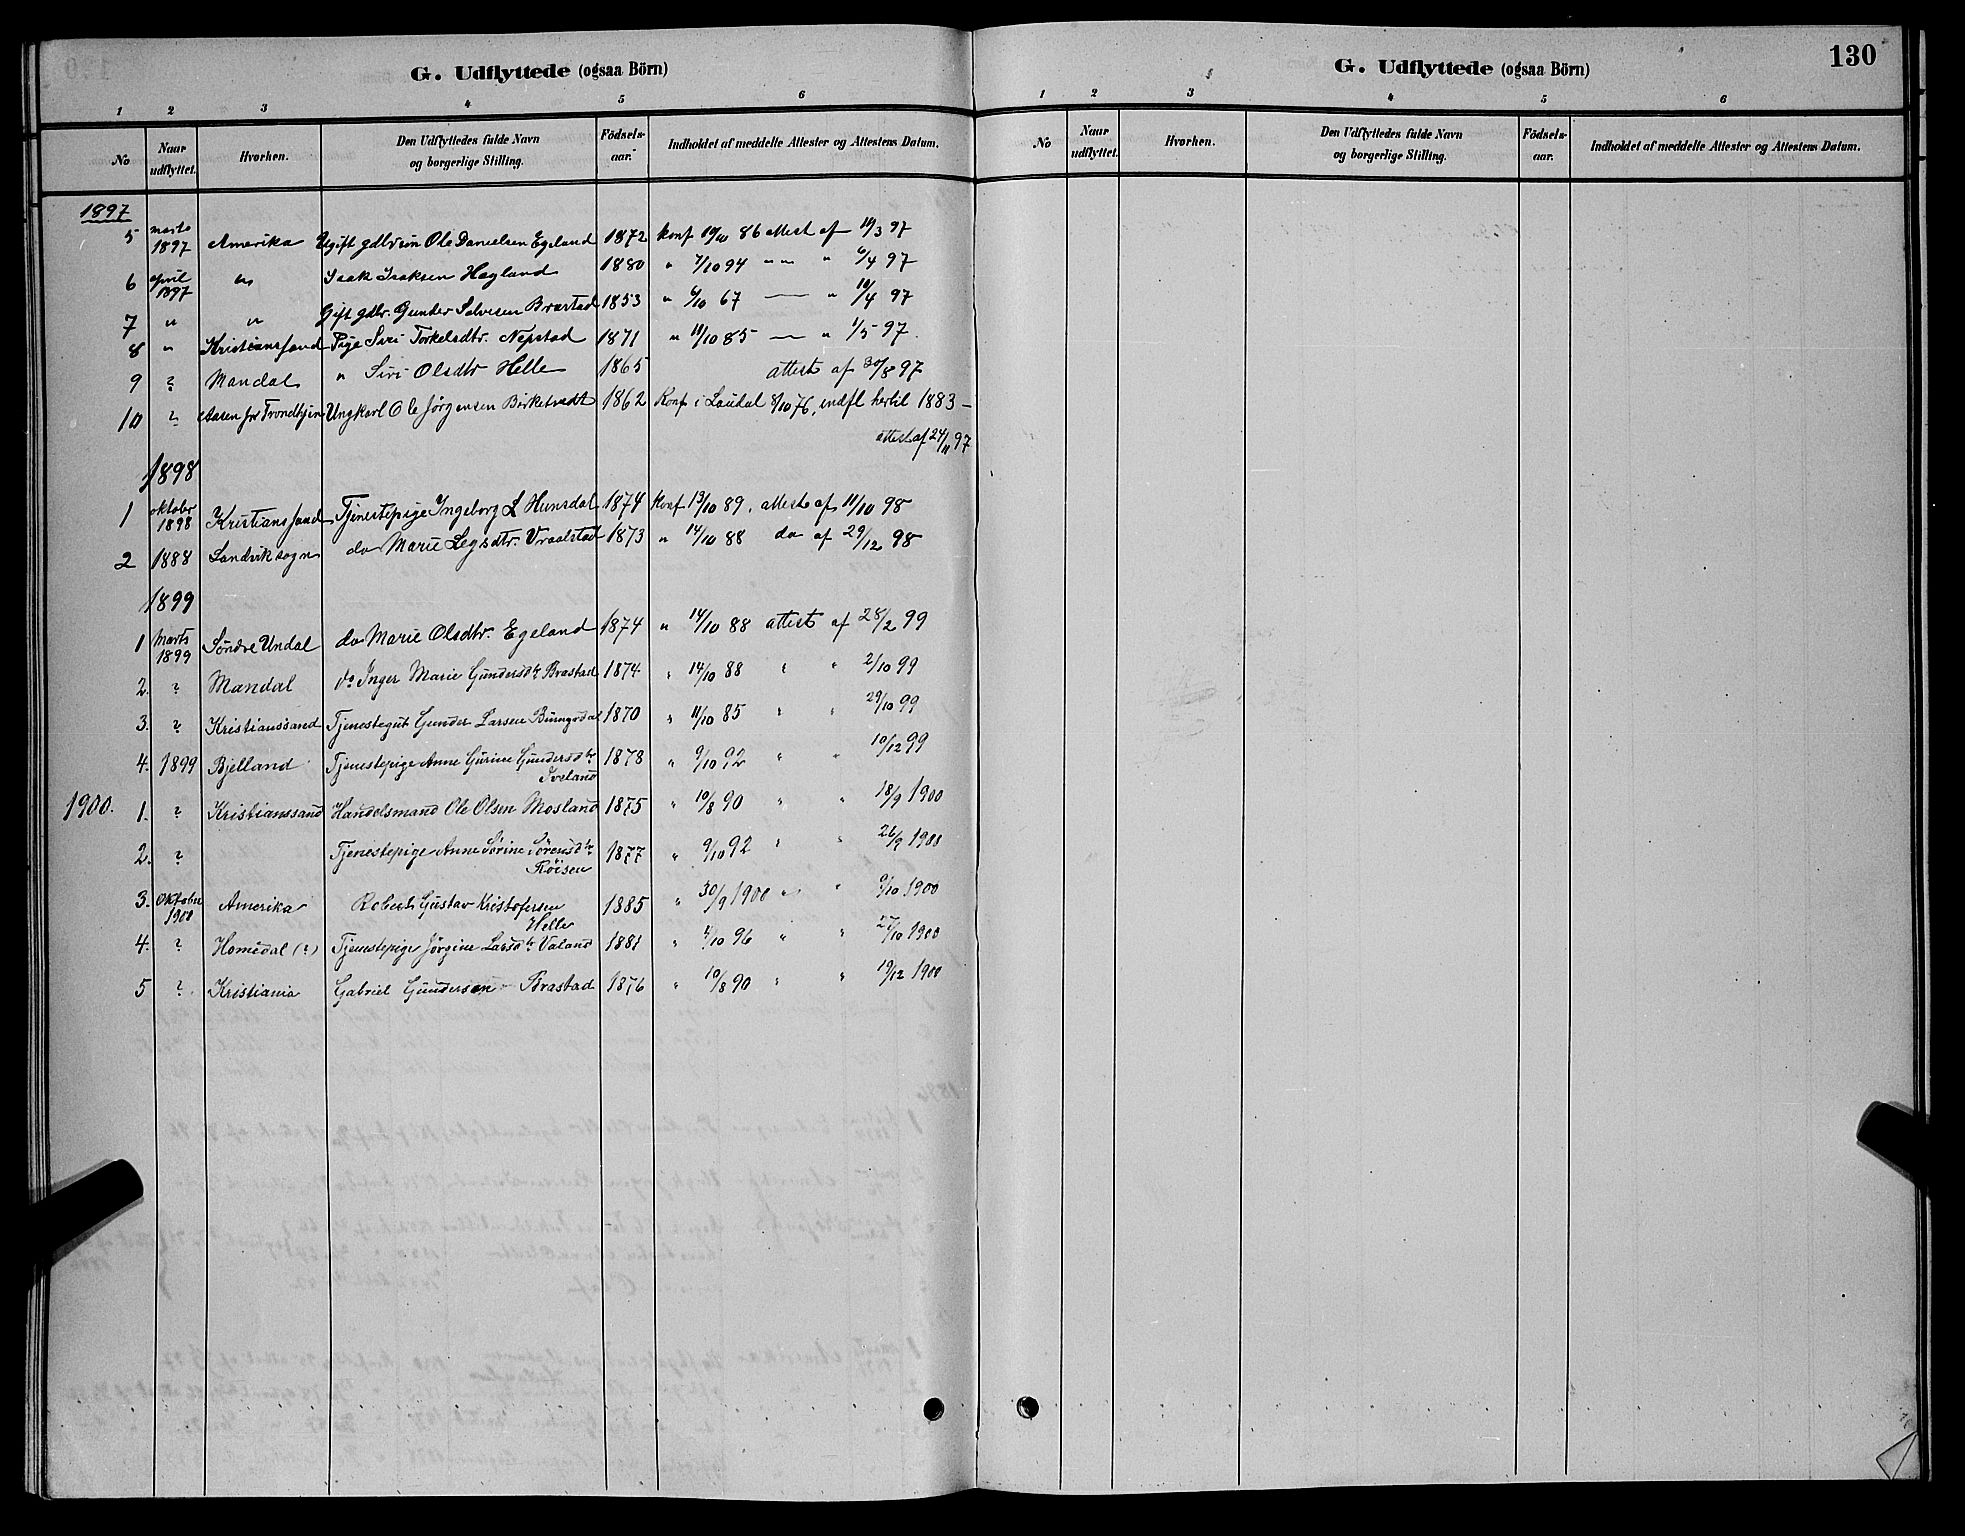 G. Udflyttede (ogsaa Börn)
1 2 3 4 5 6
No Naar udflyttet. Hvorhen. Den Udflyttedes fulde Navn og borgerlige Stilling. Födselsaar. Indholdet af meddelte Attester og Attestens Datum.
1897
5 marts 1897 Amerika Ugift gdbrsøn Ole Danielsen Egeland 1872 Konf 10/10 86 attest af 11/3 97
6 april 1897 " Isak Isaksen Høgland 1880 " 7/10 94 " " 6/4 97
7 " " Gift gdbr. Gunder Salvesen Brastad 1853 " 6/10 67 — " 10/4 97
8 " Kristianssand Pige Siri Torkelsdtr. Nepstad 1871 " 11/10 85 — " 1/5 97.
9 ? Mandal " Siri Olsdtr Helle 1865 attest af 30/8 97
10 ? Aasen pr Trondhjem Ungkarl Ole Jörgensen Birketvedt 1862 Konf i Laudal 8/10 76, indfl hertil 1883 –
attest af 24/11 97
1898
1 oktober 1898 Kristianssand Tjenestepige Ingeborg L Hunsdal 1874 Konf 13/10 89, attest af 11/10 98
2 1888 Landvik sogn do Marie Legsdtr. Vraalstad 1873 " 14/10 88 do af 29/12 98
1899
1 Marts 1899 Söndre Undal do Marie Olsdtr. Egeland 1874 " 14/10 88 attest af 28/2 99
2. ? Mandal do Inger Marie Gundersdtr Brastad 1874 " 14/10 88 " " 2/10 99
3. ? Kristianssand Tjenestegut Gunder Larsen 1870 " 11/10 85 " " 29/10 99
4. 1899 Bjelland Tjenestepige Anne Gurine Gundersdtr 1878 " 9/10 92 " " 10/12 99
Iveland
1900. 1. ? Kristianssand Handelsmand Ole Olsen Mosland 1875 " 10/8 90 " " 18/9 1900
2. ? Tjenestepige Anne Sörine Sörensdtr 1877 " 9/10 92 " " 26/9 1900
Röisen
3. Oktober 1900 Amerika Robert Gustav Kristofersen 1885 " 30/9 1900 " " 9/10 1900
Helle
4. ? Homedal (?) Tjenestepige Jörgine Larsdtr Valand 1881 " 4/10 96 " " 27/10 1900
5 ? Kristiania Gabriel Gundersen Brastad 1876 " 10/8 90 " " 19/12 1900
G. Udflyttede (ogsaa Börn)
130
1 2 3 4 5 6
No Naar udflyttet. Hvorhen. Den Udflyttedes fulde Navn og borgerlige Stilling. Födselsaar. Indholdet af meddelte Attester og Attestens Datum.